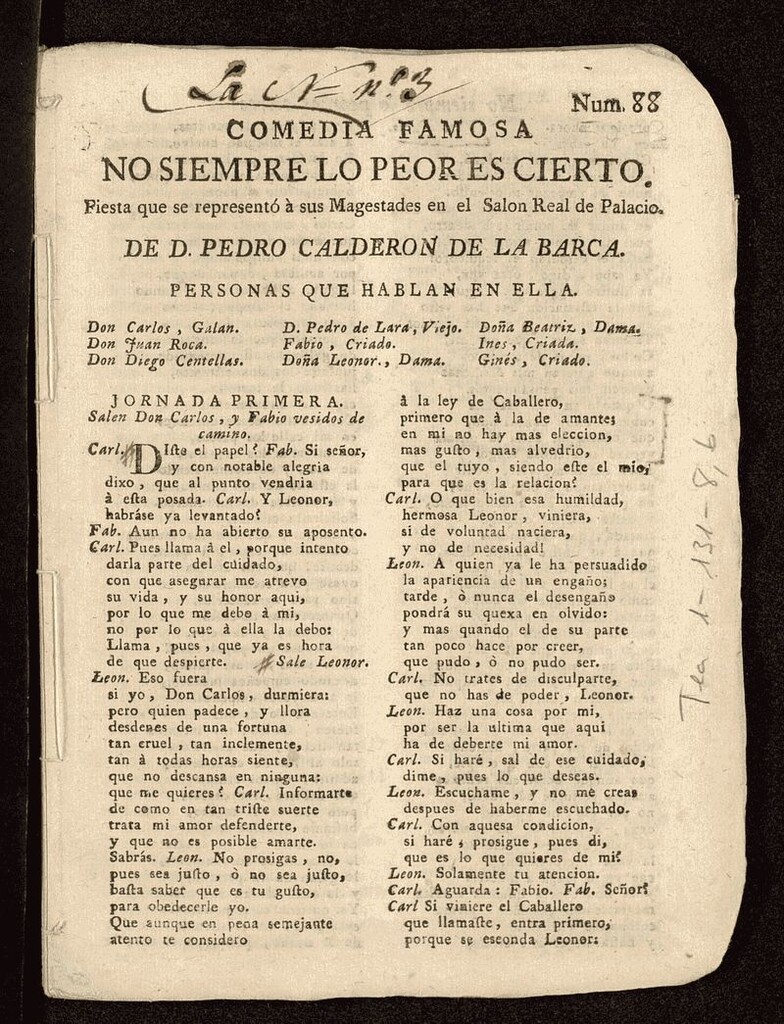 La N= nº. 3
Num. 88
COMEDIA FAMOSA
NO SIEMPRE LO PEOR ES CIERTO.
Fiesta que se representó à sus Magestades en el Salon Real de Palacio.
DE D. PEDRO CALDERON DE LA BARCA.
PERSONAS QUE HABLAN EN ELLA.
Don Carlos, Galan. D. Pedro de Lara, Viejo. Doña Beatriz, Dama.
Don Juan Roca. Fabio, Criado. Ines, Criada.
Don Diego Centellas. Doña Leonor., Dama. Ginés, Criado.
JORNADA PRIMERA.
Salen Don Carlos, y Fabio vesidos de
camino.
Carl. DIste el papel? Fab. Si señor,
y con notable alegria
dixo, que al punto vendria
à esta posada. Carl. Y Leonor,
habráse ya levantado?
Fab. Aun no ha abierto su aposento.
Carl. Pues llama à el, porque intento
darla parte del cuidado,
con que asegurar me atrevo
su vida, y su honor aqui,
por lo que me debo à mi,
no por lo que à ella la debo:
Llama, pues, que ya es hora
de que despierte. Sale Leonor.
Leon. Eso fuera
si yo, Don Carlos, durmiera:
pero quien padece, y llora
desdenes de una fortuna
tan cruel, tan inclemente,
tan à todas horas siente,
que no descansa en ninguna:
que me quieres? Carl. Informarte
de como en tan triste suerte
trata mi amor defenderte,
y que no es posible amarte.
Sabrás. Leon. No prosigas, no,
pues sea justo, ò no sea justo,
basta saber que es tu gusto,
para obedecerle yo.
Que aunque en pena semejante
atento te considero
à la ley de Caballero,
primero que à la de amante;
en mi no hay mas eleccion,
mas gusto, mas alvedrio,
que el tuyo, siendo este el mio,
para que es la relacion?
Carl. O que bien esa humildad,
hermosa Leonor, viniera,
si de voluntad naciera,
y no de necesidad!
Leon. A quien ya le ha persuadido
la apariencia de un engaño;
tarde, ò nunca el desengaño
pondrá su quexa en olvido:
y mas quando el de su parte
tan poco hace por creer,
que pudo, ò no pudo ser.
Carl. No trates de disculparte,
que no has de poder, Leonor.
Leon. Haz una cosa por mi,
por ser la ultima que aqui
ha de deberte mi amor.
Carl. Si haré, sal de ese cuidado,
dime, pues lo que deseas.
Leon. Escuchame, y no me creas
despues de haberme escuchado.
Carl. Con aquesa condicion,
si haré; prosigue, pues di,
que es lo que quieres de mi?
Leon. Solamente tu atencion.
Carl. Aguarda: Fabio. Fab. Señor?
Carl Si viniere el Caballero
que llamaste, entra primero,
porque se esconda Leonor:
Tea 1-131-8, b